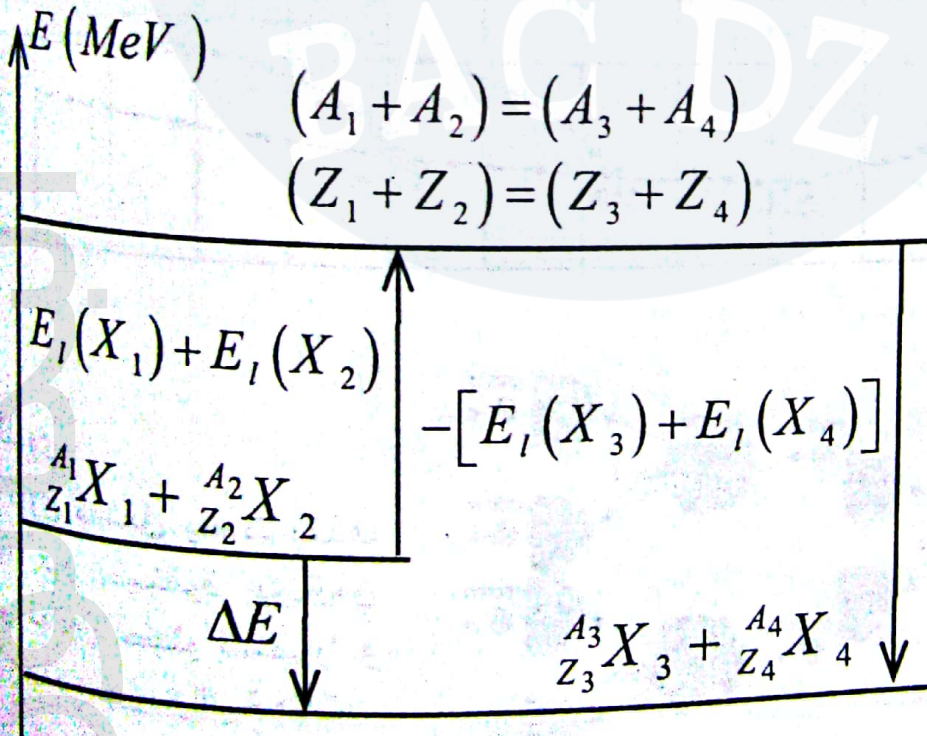 E(MeV)
BAC DZ
(A₁ + A₂) = (A₃ + A₄)
(Z₁ + Z₂) = (Z₃ + Z₄)
E_l(X₁) + E_l(X₂)
−[E_l(X₃) + E_l(X₄)]
^{A₁}_{Z₁}X₁ + ^{A₂}_{Z₂}X₂
ΔE
^{A₃}_{Z₃}X₃ + ^{A₄}_{Z₄}X₄